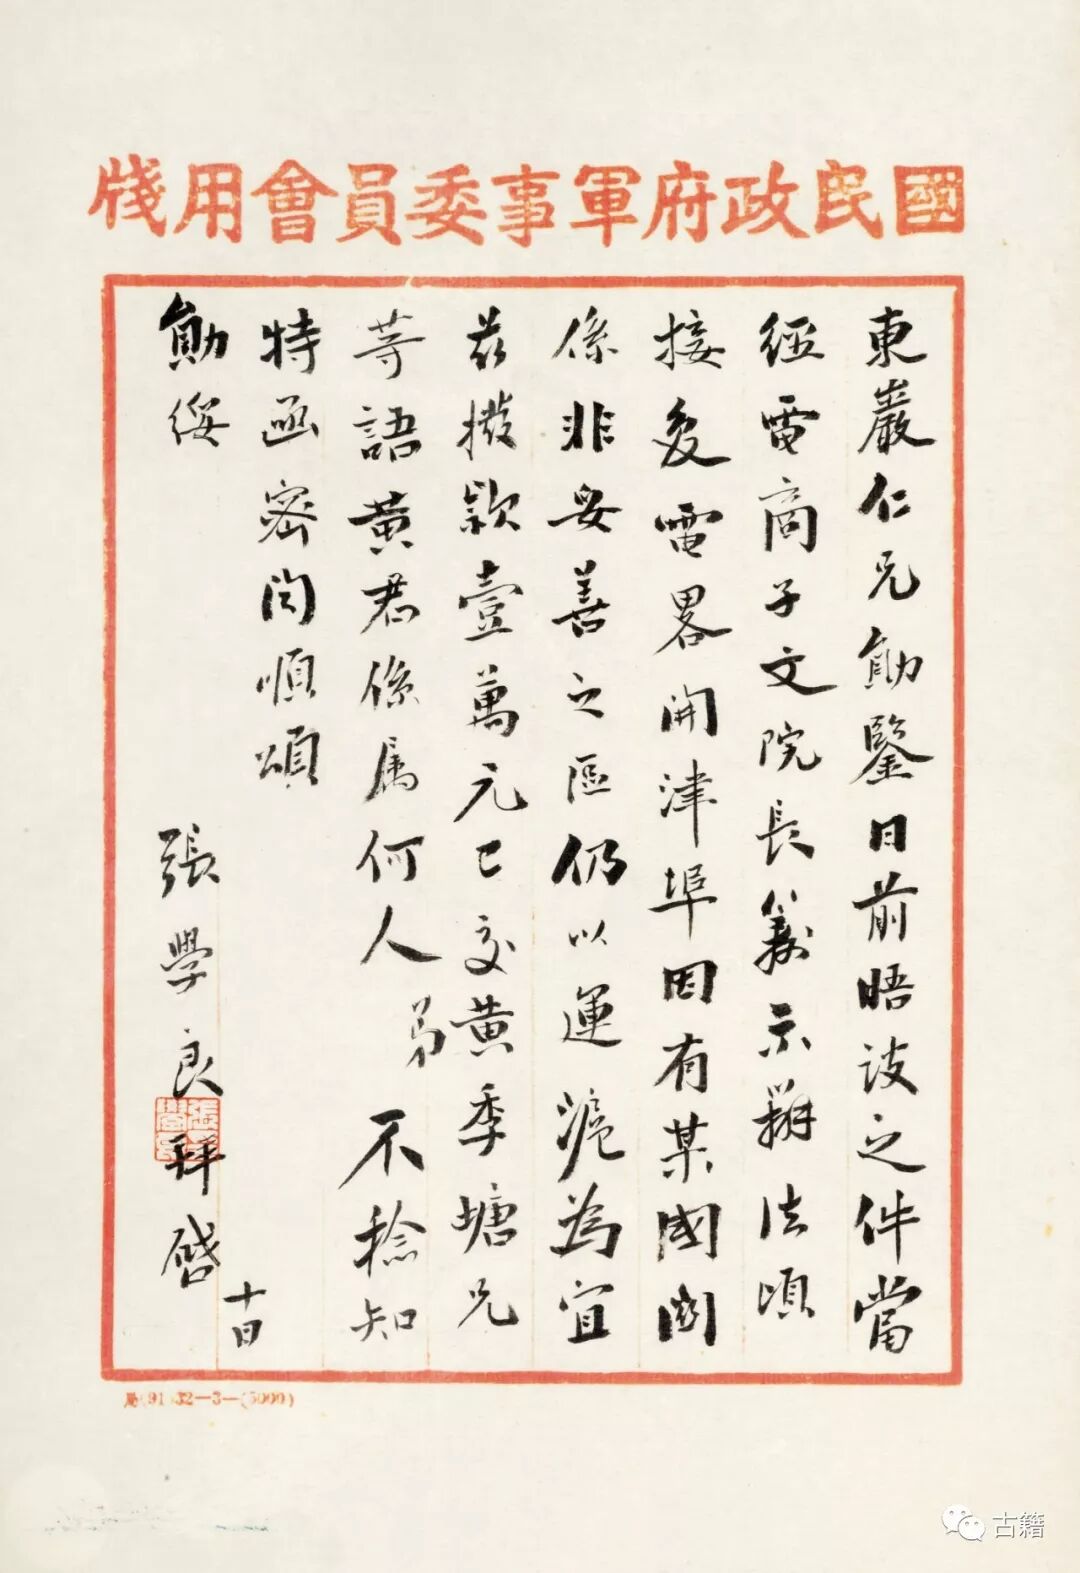 國民政府軍事委員會用牋
東巖仁兄勛鑒日前晤談之件當
經電商子文院長籌示辦法頃
接复電畧開津埠因有某國関
係非妥善之區仍以運滬為宜
茲撥款壹萬元已交黃季塘兄
等語黃君係属何人弟不稔知
特函密問順頌
勛綏
張學良拜啓
十日
張學良
局(91)32—3—(5000)
古籍